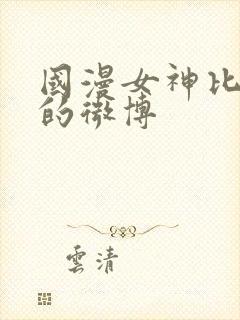 國漫女神比
的微博
雲清